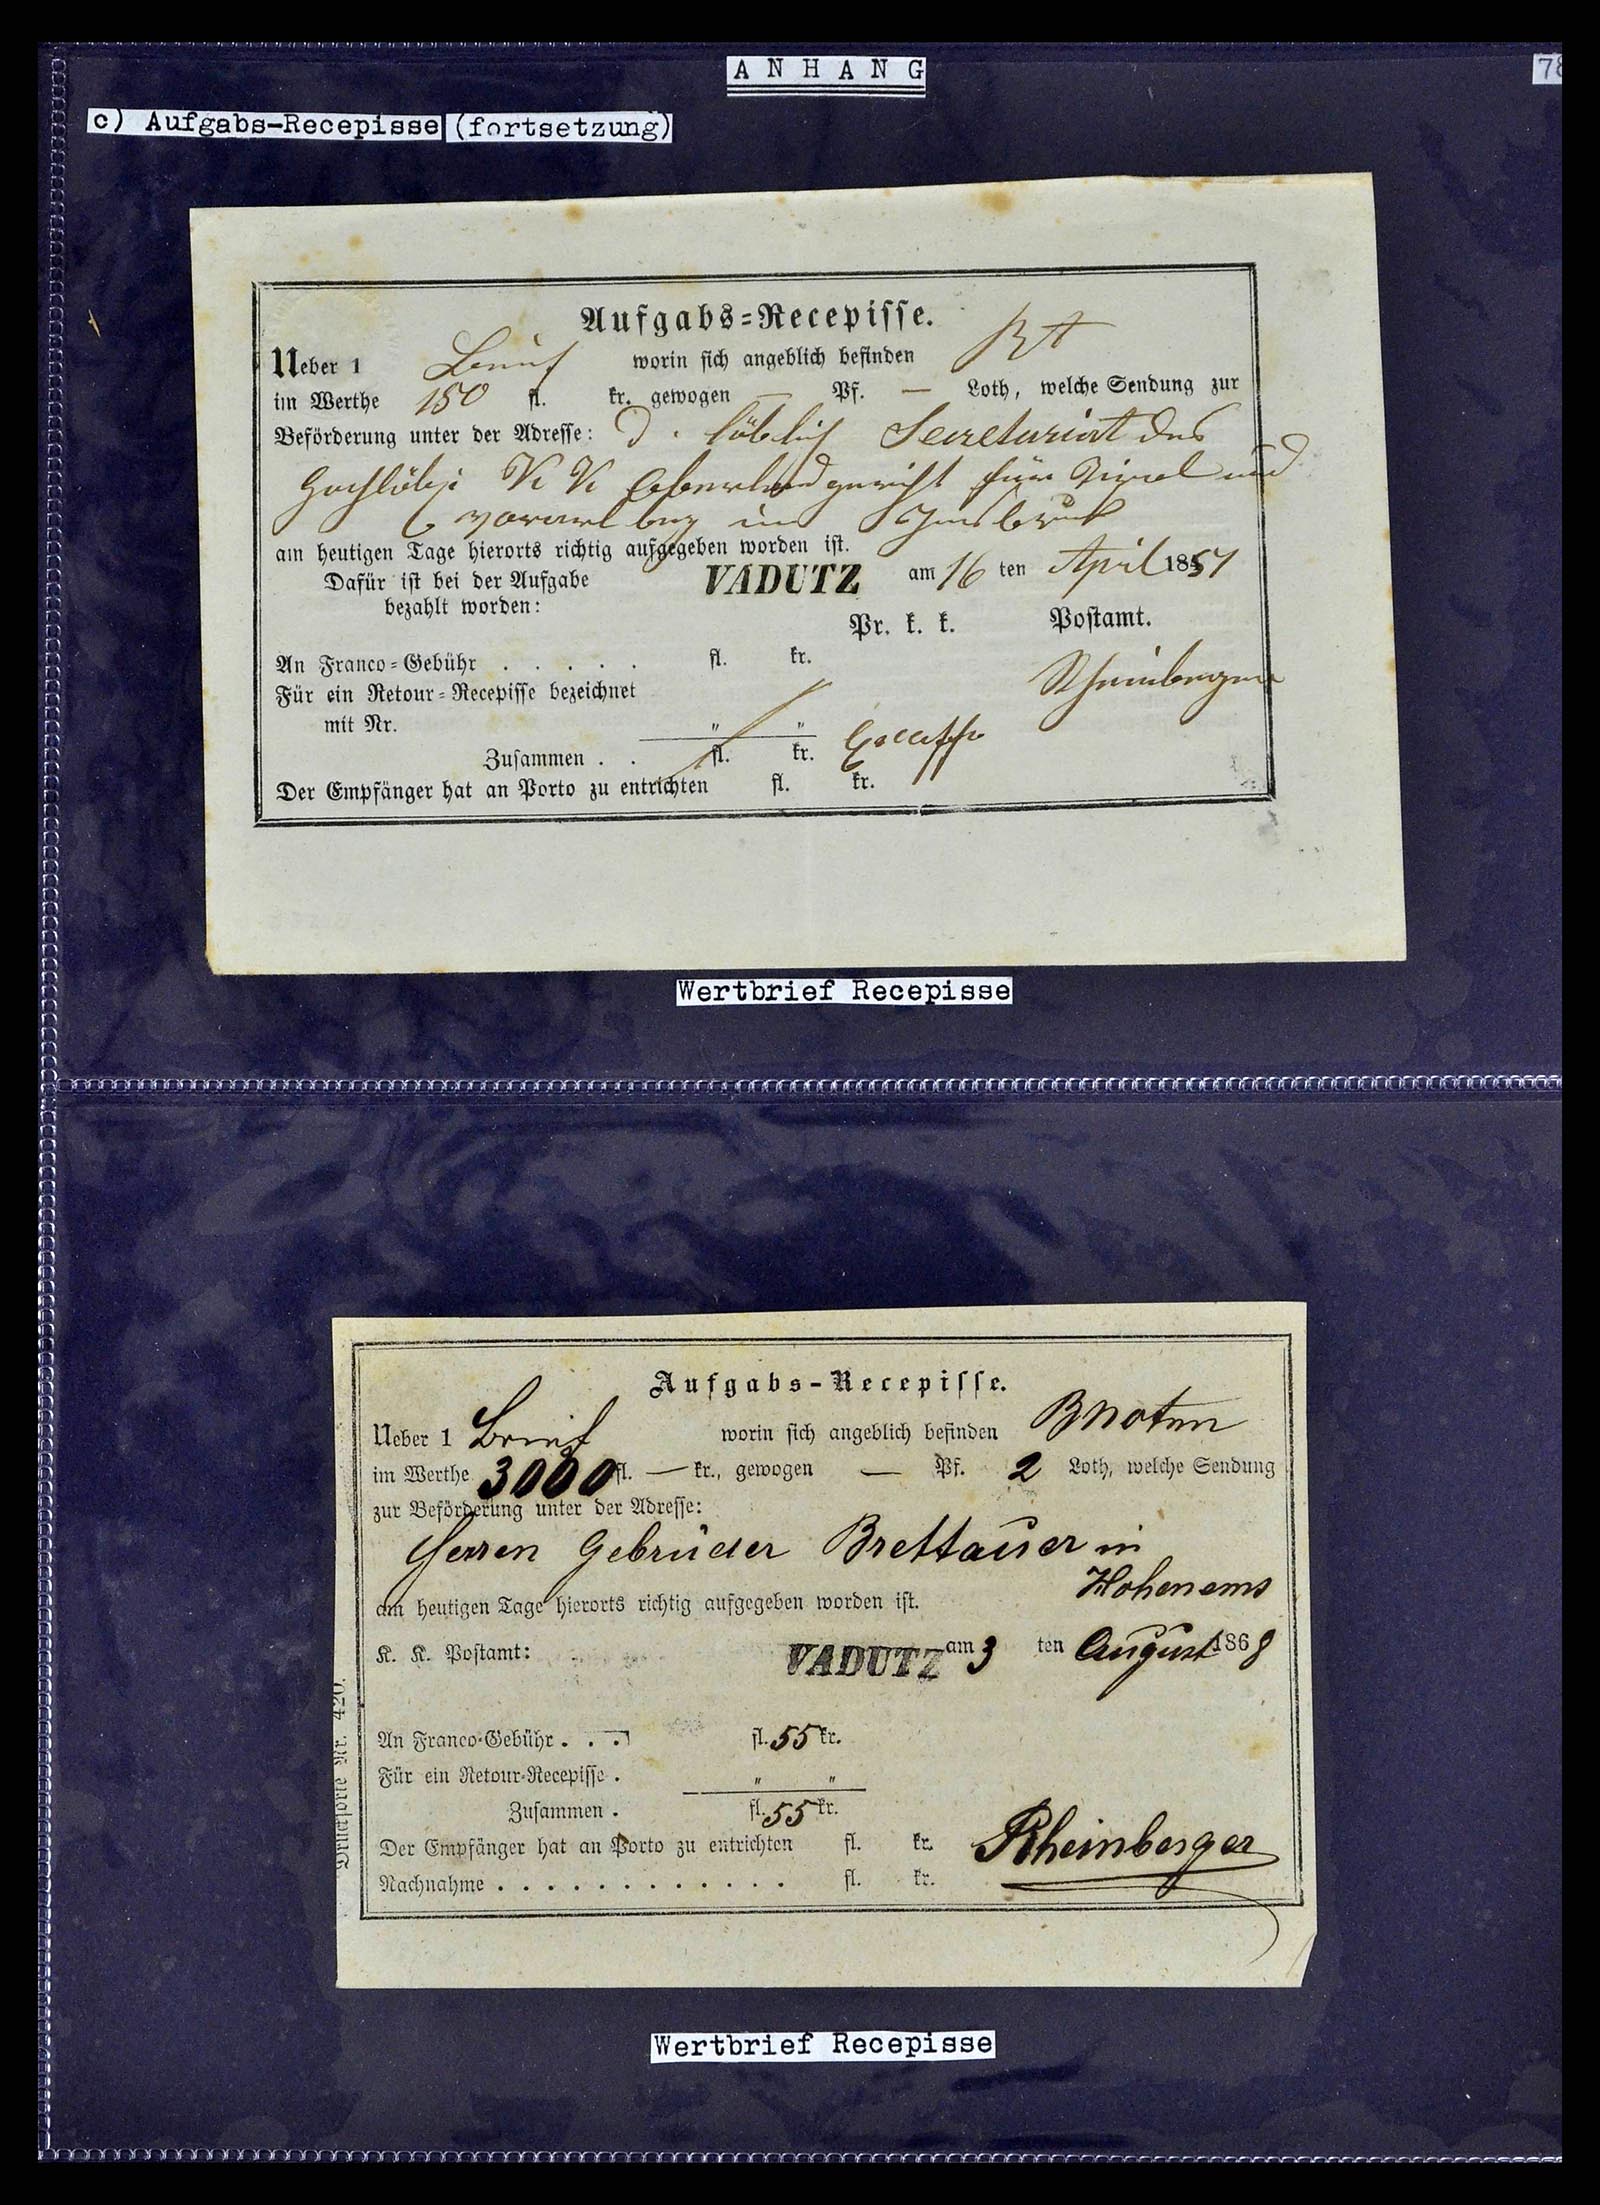 ANHANG
78
c) Aufgabs-Recepisse (fortsetzung)
Aufgabs=Recepisse.
Ueber 1 Brief worin sich angeblich befinden
im Werthe 150 fl. kr. gewogen — Pf. — Loth, welche Sendung zur
Beförderung unter der Adresse: d. löblich Secretariat des
K K Oberlandgericht für Tirol und
Vorarlberg in Insbruck
am heutigen Tage hierorts richtig aufgegeben worden ist.
Dafür ist bei der Aufgabe VADUTZ am 16 ten April 1857
bezahlt worden:
Pr. k. k. Postamt.
An Franco=Gebühr . . . . . fl. kr.
Für ein Retour=Recepisse bezeichnet Rheinberger
mit Nr. " "
Zusammen . . fl. kr.
Der Empfänger hat an Porto zu entrichten fl. kr.
Wertbrief Recepisse
Aufgabs-Recepisse.
Ueber 1 Brief worin sich angeblich befinden BNoten
im Werthe 3000 fl. — kr., gewogen — Pf. 2 Loth, welche Sendung
zur Beförderung unter der Adresse:
Herren Gebrüder Brettauer in
Hohenems
am heutigen Tage hierorts richtig aufgegeben worden ist.
K. K. Postamt: VADUTZ am 3 ten August 1868
An Franco-Gebühr . . . fl. 55 kr.
Für ein Retour-Recepisse . " "
Zusammen . fl. 55 kr.
Der Empfänger hat an Porto zu entrichten fl. kr. Rheinberger
Nachnahme . . . . . . . . . . . . fl. kr.
Drucksorte Nr. 420.
Wertbrief Recepisse